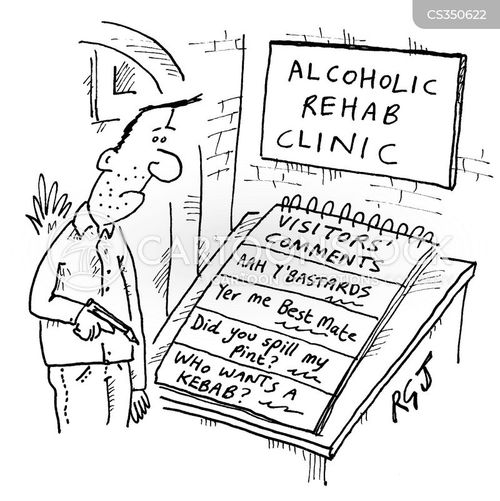 CS350622
ALCOHOLIC
REHAB
CLINIC
VISITORS'
COMMENTS
AAH Y'BASTARDS
Yer me Best Mate
Did you spill my
Pint?
WHO WANTS A
KEBAB?
RGJ
CARTOONSTOCK